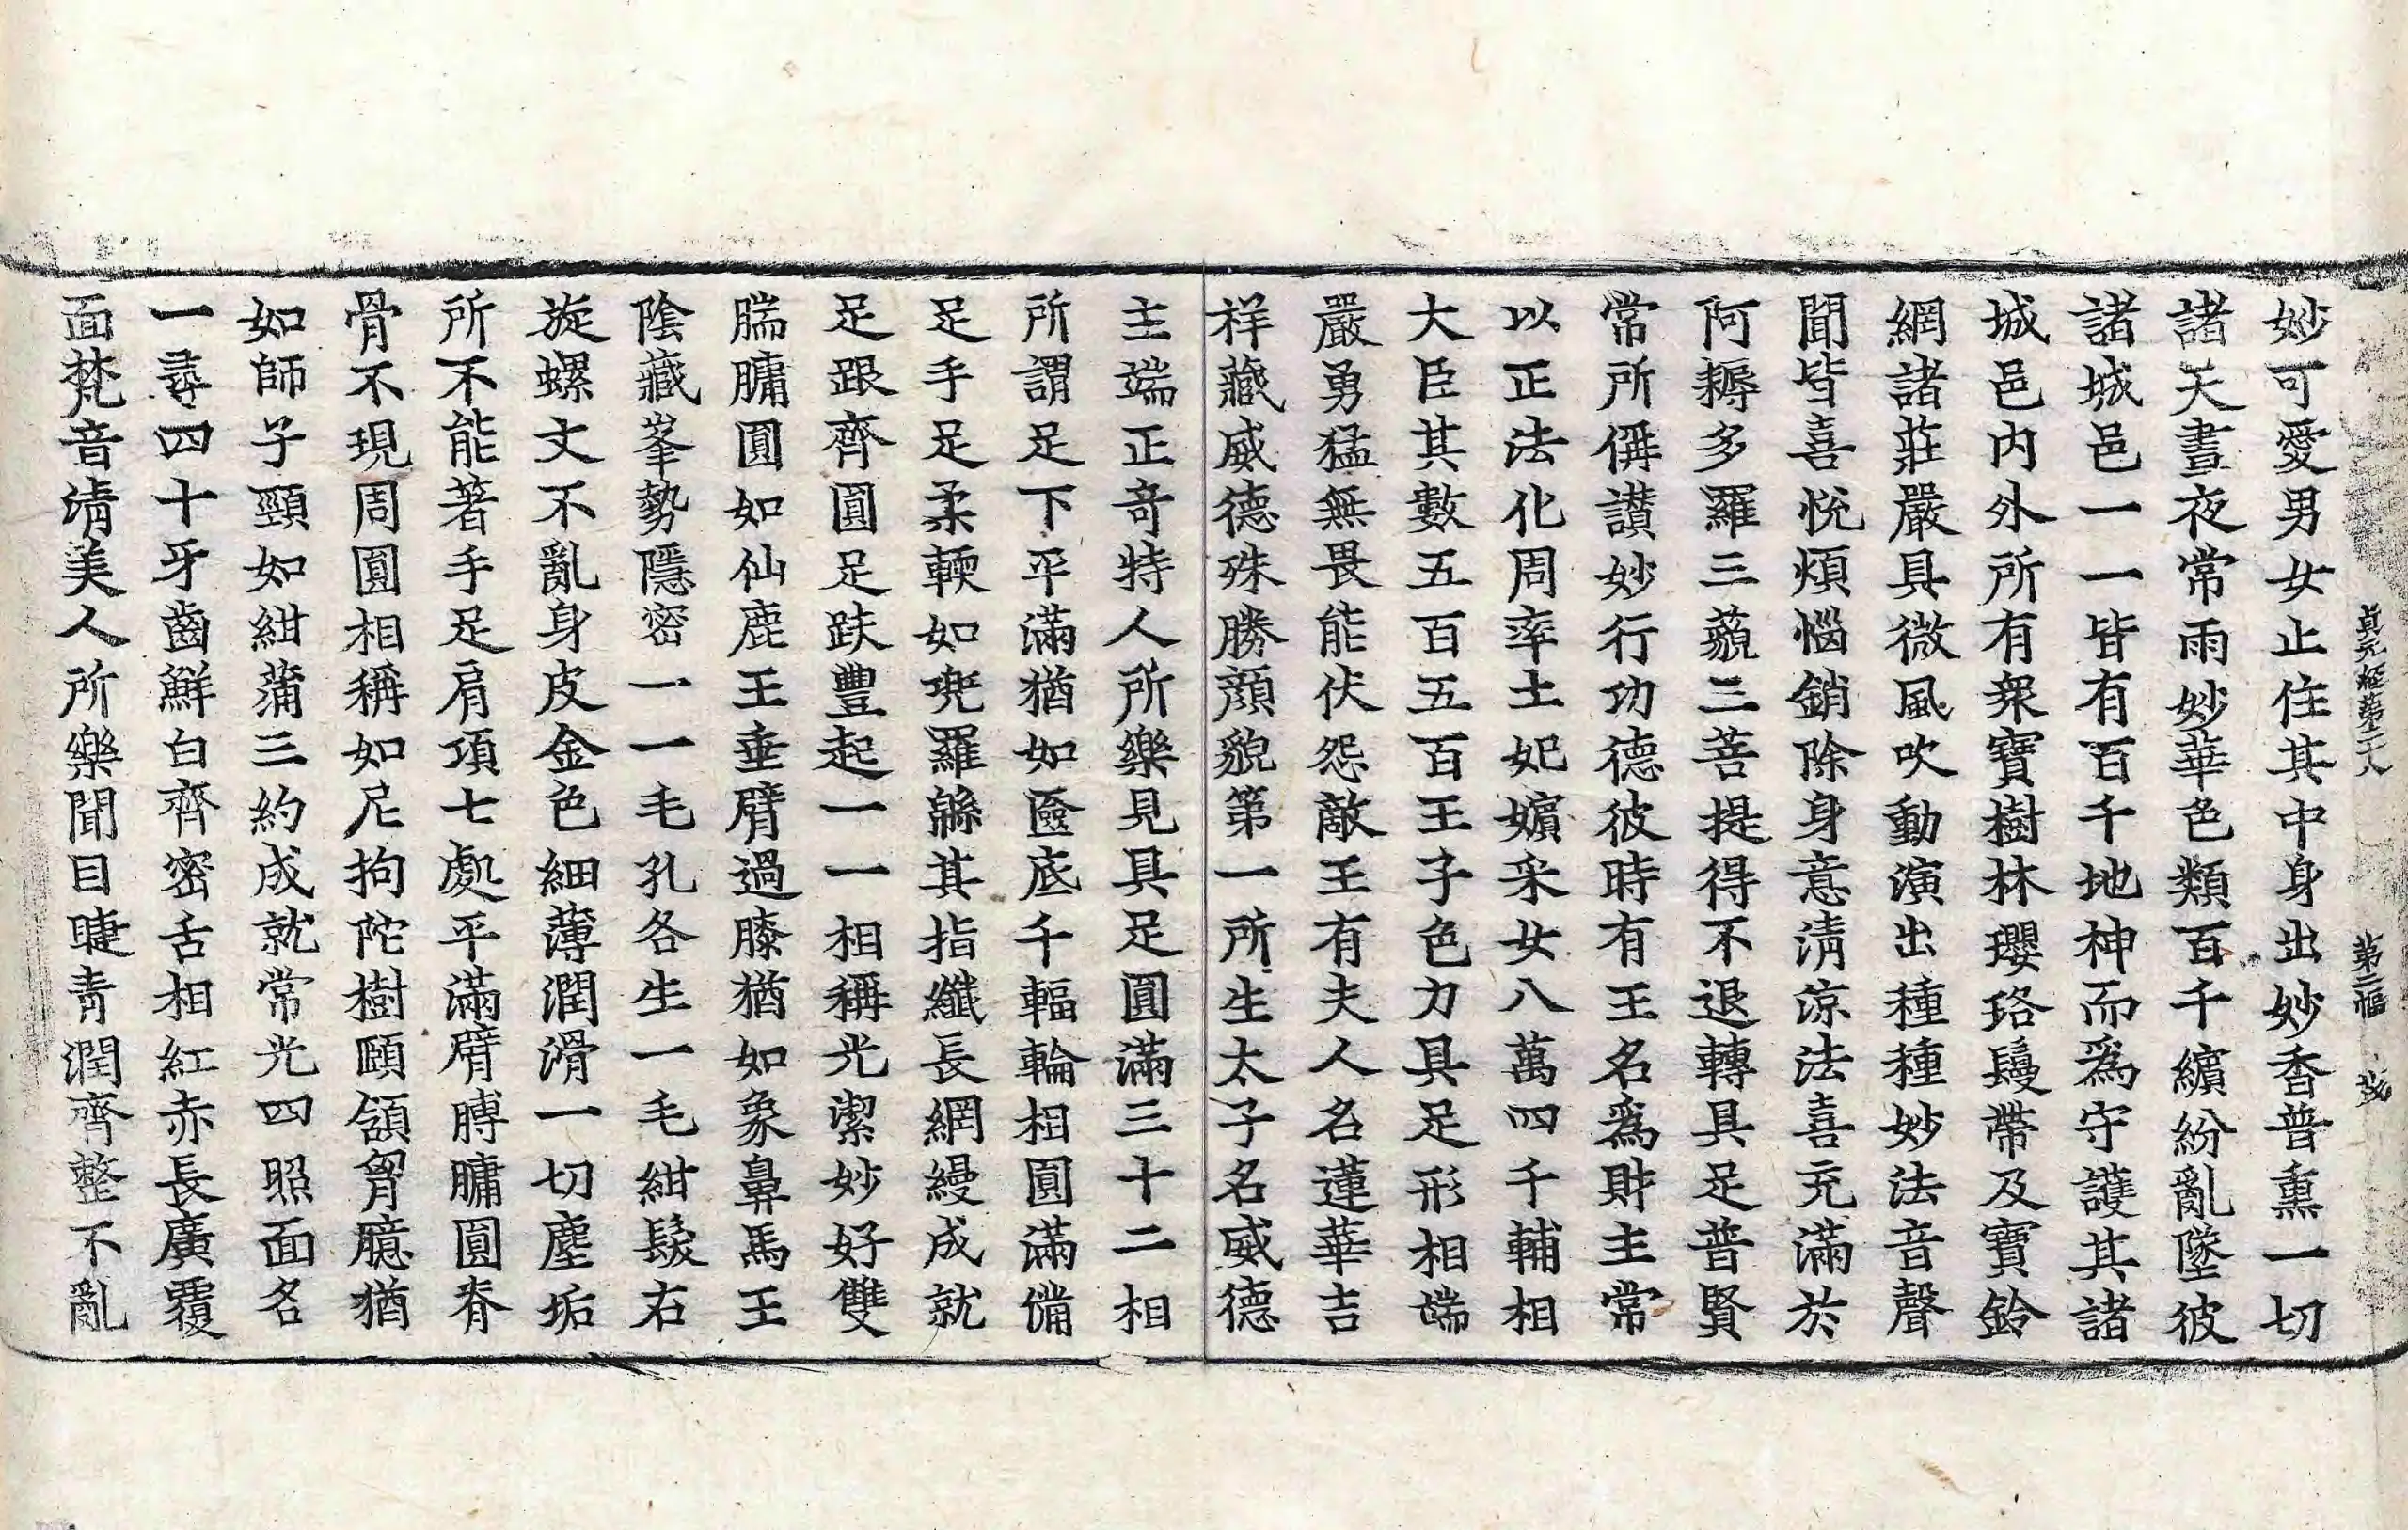 貞元經第二十八 第二幅
妙可愛男女止住其中身出妙香普熏一切
諸天晝夜常雨妙華色類百千繽紛亂墜彼
諸城邑一一皆有百千地神而爲守護其諸
城邑内外所有衆寶樹林瓔珞鬘帶及寶鈴
網諸莊嚴具微風吹動演出種種妙法音聲
聞皆喜悅煩惱銷除身意清涼法喜充滿於
阿耨多羅三藐三菩提得不退轉具足普賢
常所稱讃妙行功德彼時有王名爲財主常
以正法化周率土妃嬪采女八萬四千輔相
大臣其數五百五百王子色力具足形相端
嚴勇猛無畏能伏怨敵王有夫人名蓮華吉
祥藏威德殊勝顔貌第一所生太子名威德
主端正奇特人所樂見具足圓滿三十二相
所謂足下平滿猶如匳底千輻輪相圓滿備
足手足柔輭如兜羅緜其指纖長網縵成就
足跟齊圓足趺豐起一一相稱光潔妙好雙
腨𦟛圓如仙鹿王垂臂過膝猶如象鼻馬王
陰藏峯勢隱密一一毛孔各生一毛紺髮右
旋螺文不亂身皮金色細薄潤滑一切塵垢
所不能著手足肩項七處平滿臂膊𦟛圓脊
骨不現周圓相稱如尼拘陀樹頤頷胷臆猶
如師子頸如紺蒲三約成就常光四照面名
一尋四十牙齒鮮白齊密舌相紅赤長廣覆
面梵音清美人所樂聞目睫青潤齊整不亂